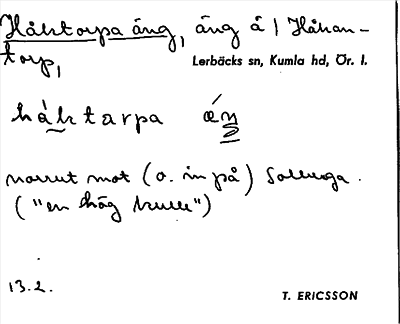 Håkstorpa äng, äng å / Håkan-
torp,
Lerbäcks sn, Kumla hd, Ör. l.
håkstarpa
norrut mot (o. in på) Salunga.
("en hög kulle")
13.2.
T. ERICSSON